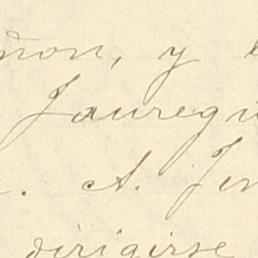 ñon, y
Jauregu
. A. Jim
dirigirse